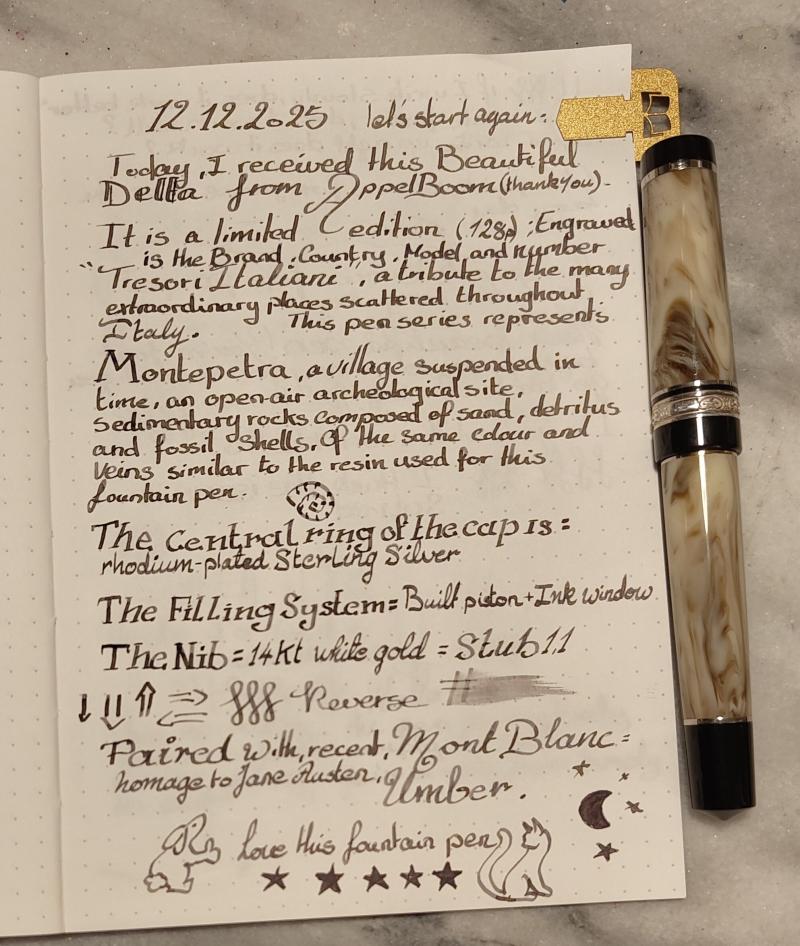 12.12.2025 let's start again:
Today, I received this Beautiful
Delta from AppelBoom (thank you).
It is a limited edition (128p) ; Engraved
is the Brand, Country, Model, and number
"Tresori Italiani", a tribute to the many
extraordinary places scattered throughout
Italy. This pen series represents
Montepetra, a village suspended in
time, an open-air archeological site,
sedimentary rocks composed of sand, detritus
and fossil shells. Of the same colour and
veins similar to the resin used for this
fountain pen.
The central ring of the cap is =
rhodium-plated Sterling Silver
The Filling System = Built piston + Ink window
The Nib = 14kt white gold = Stub 1,1
Reverse
Paired with, recent, Mont Blanc =
homage to Jane Austen, Umber.
love this fountain pen